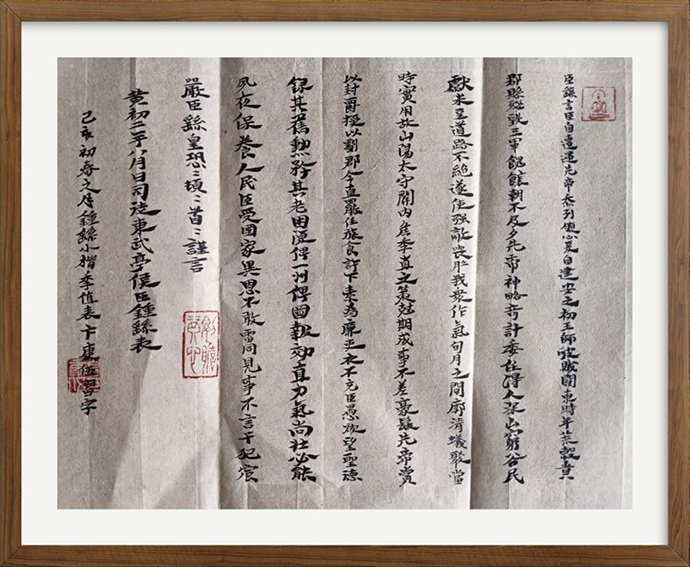 臣繇言臣自遭遇先帝忝列腹心爰自建安之初王師破賊關東時年荒穀貴
郡縣殘毀三軍餽饟朝不及夕先帝神略奇計委任得人深山窮谷民
獻米豆道路不絕遂使強敵喪膽我眾作氣旬月之間廓清蟻聚當
時實用故山陽太守關內侯季直之策剋期成事不差豪髮先帝賞
以封爵授以劇郡今直罷任旅食許下素為廉吏衣不充臣愚欲望聖德
錄其舊勳矜其老困復俾一州俾圖報効直力氣尚壯必能
夙夜保養人民臣受國家異恩不敢雷同見事不言干犯宸
嚴臣繇皇恐〻頓〻首〻謹言
黃初二年八月日司徒東武亭侯臣鍾繇表
己亥初春之月鍾繇小楷季值表 卞康習字